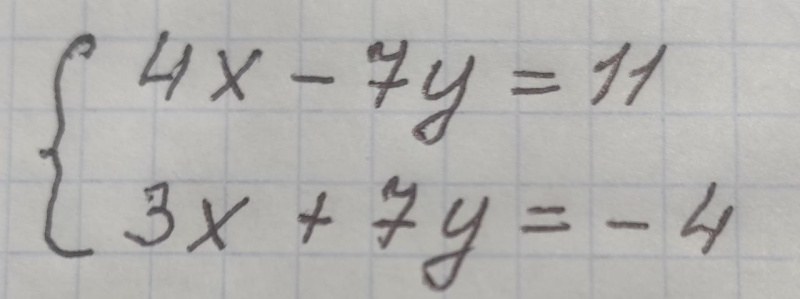 4x - 7y = 11
3x + 7y = - 4